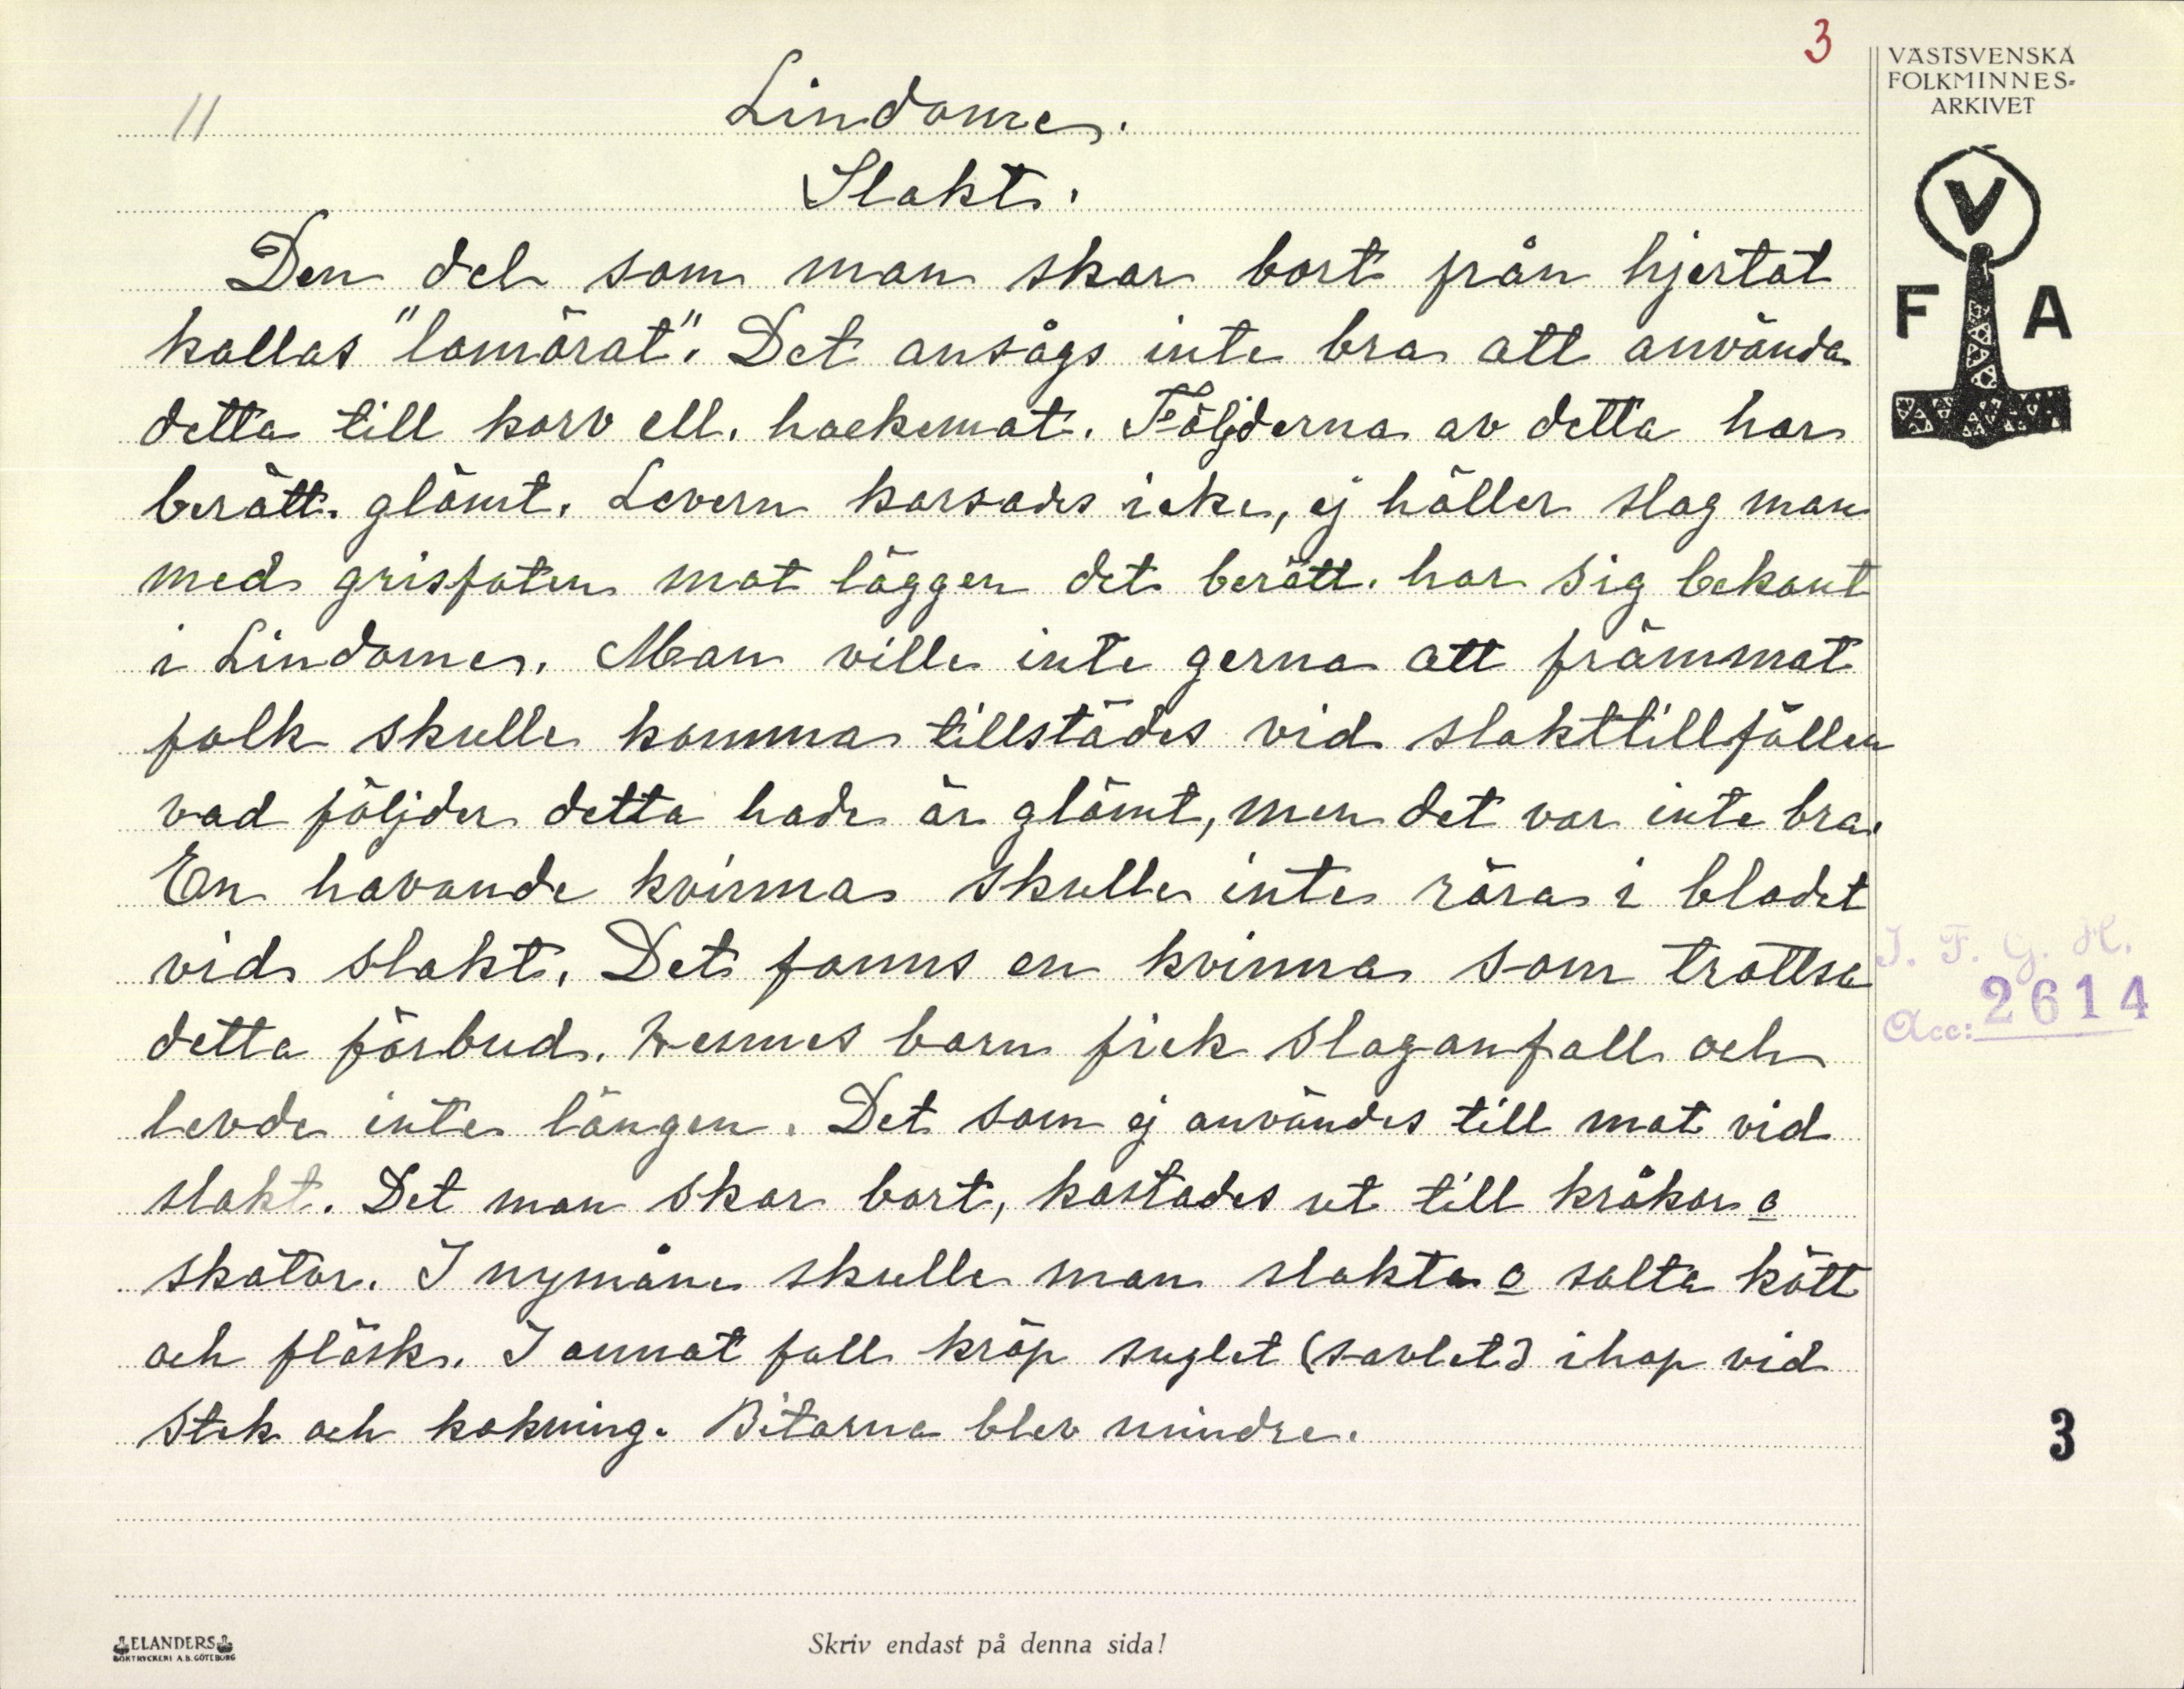 3
VÄSTSVENSKA
FOLKMINNES-
ARKIVET
11
Lindome.
Slakt.
V
F A
Den del som man skar bort från hjertat
kallas "lomörat". Det ansågs inte bra att använda
detta till korv ell. hackemat. Följderna av detta har
berätt. glömt. Levern korsades icke, ej häller slog man
med grisfoten mot läggen det berätt. har sig bekant
i Lindome. Man ville inte gerna att främmat
folk skulle komma tillstädes vid slakttillfällen
vad följder detta hade är glömt, men det var inte bra.
En havande kvinna skulle inte röra i blodet
vid slakt. Det fanns en kvinna som trottsa
detta förbud. Hennes barn fick slaganfall och
levde inte längen. Det som ej användes till mat vid
slakt. Det man skar bort, kastades ut till kråkor o
skator. I nymåne skulle man slakta o salta kött
och fläsk. I annat fall kröp suglet (sovlet) ihop vid
stek och kokning. Bitarna blev mindre.
I. F. G. H.
Acc: 2614
3
ELANDERS
BOKTRYCKERI A.B. GÖTEBORG
Skriv endast på denna sida!